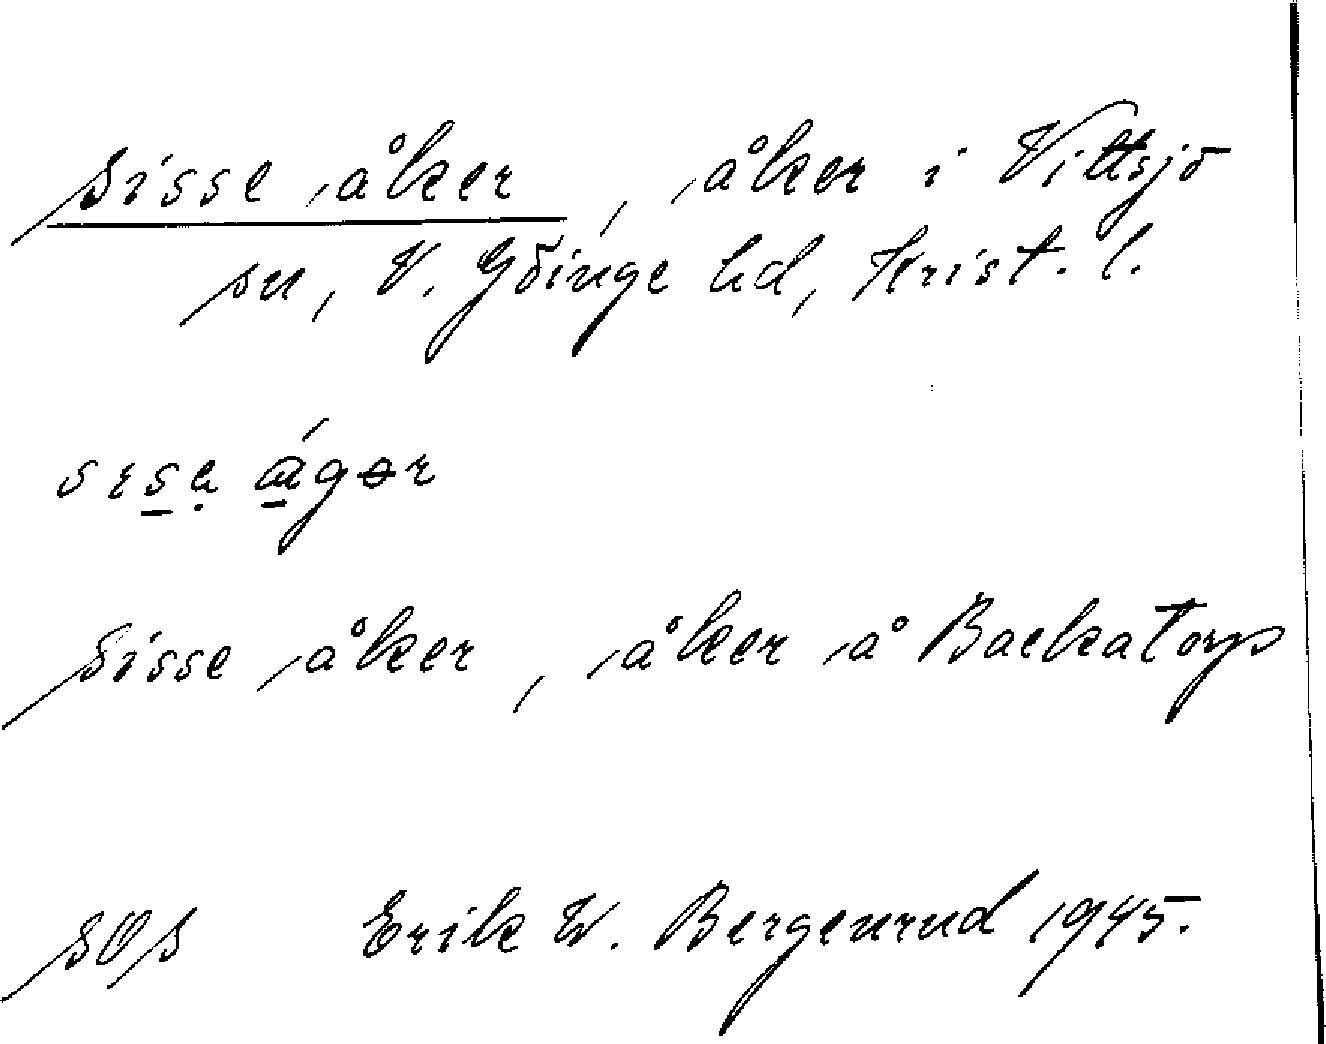 Sisse åker, åker i Vittsjö
sn, V. Göinge hd, Krist. l.
sɪsa ágər
Sisse åker, åker å Backatorp
SOS Erik W. Bergenrud 1945.